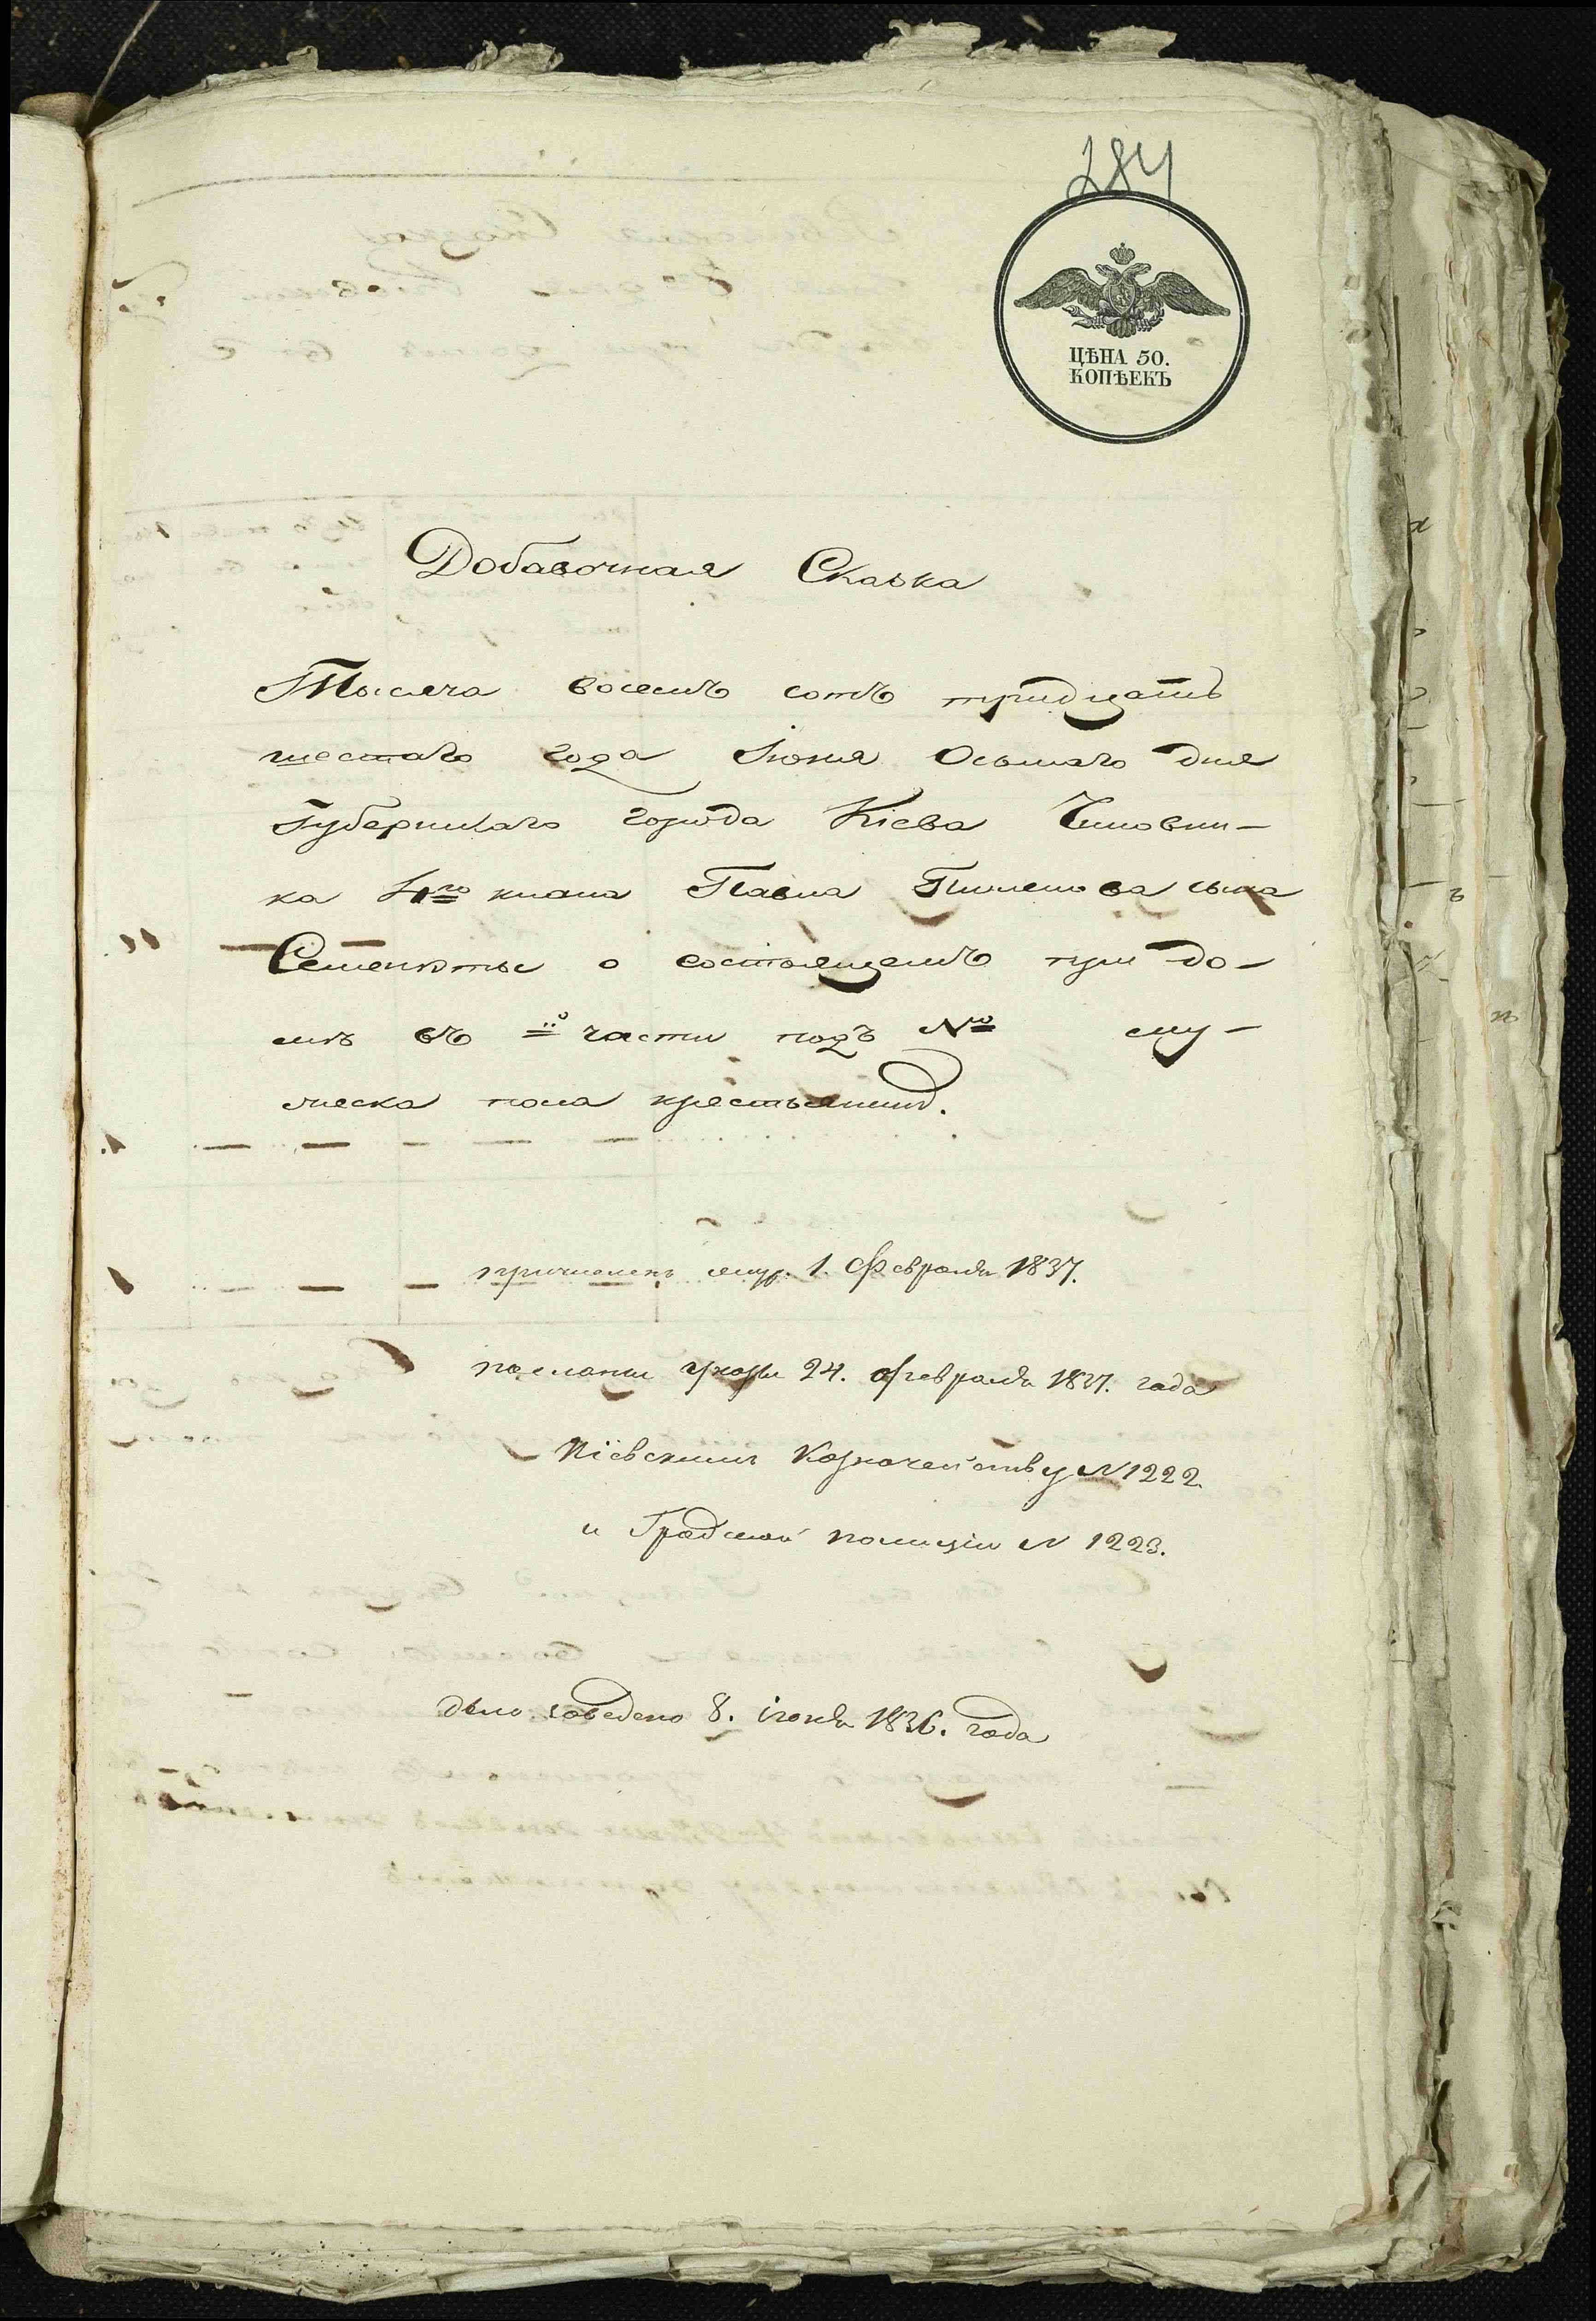 284
ЦѢНА 50.
КОПѢЕКЪ
Добавочная Сказка
Тысяча восемь сотъ тридцать
шестаго года Іюня Осьмаго дня
Губернскаго города Кіева Чиновни-
ка 4го класа Павла Пименова сына
о состоящемъ при до-
мѣ въ части подъ № му-
жеска пола крестьянинѣ.
причисленъ 1. Февраля 1837.
посланы указы 24. февраля 1837. года
Кіевскимъ Казначейству N 1222.
и Градской полиціи N 1223.
дѣло заведено 8. іюня 1836. года